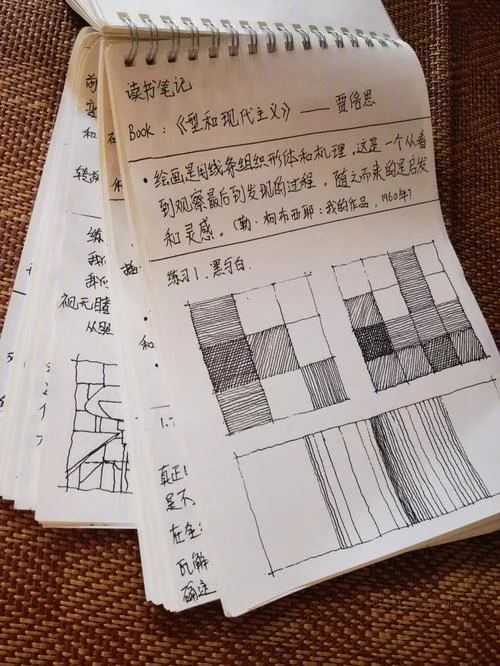 读书笔记
Book：《型和现代主义》——贾倍思
·绘画是用线条组织形体和机理，这是一个从看
到观察最后到发现的过程。随之而来的是启发
和灵感。（勒·柯布西耶：我的作品，1960年）
练习1.黑与白.
真正
是不
在
瓦解
确
和
练
我们
我们
视无睹
从
和
转